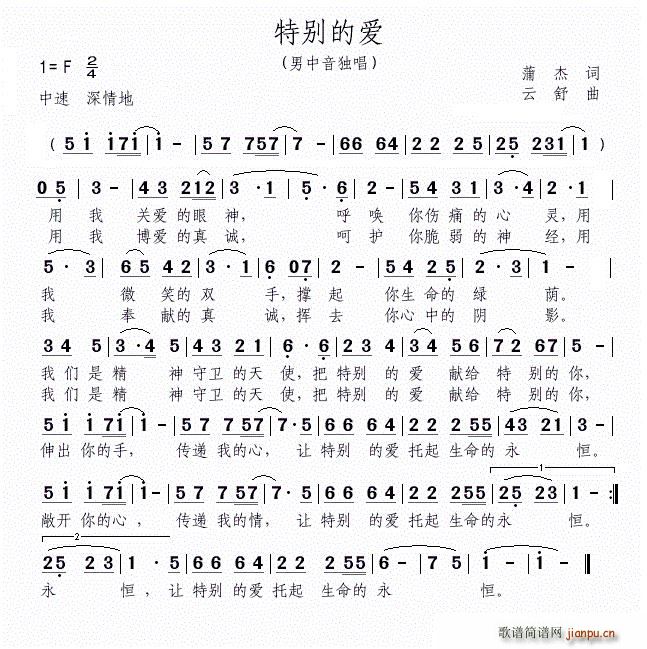 特别的爱
(男中音独唱)
1=F 2/4
中速 深情地
蒲杰 词
云舒 曲
(5 i i 7 i | i - | 5 7 7 5 7 | 7 - | 6 6 6 4 | 2 2 2 5 | 2 5 2 3 1 | 1)
0 5 | 3 - | 4 3 2 1 2 | 3 · 1 | 5 · 6 | 2 - | 5 4 3 1 | 3 · 4 | 2 · 1 |
用 我 关爱的眼神, 呼唤 你伤痛的心灵,用
用 我 博爱的真诚, 呵护 你脆弱的神经,用
5 · 3 | 6 5 4 2 | 3 2 3 | 1 · 3 | 6 0 7 | 2 - | 5 4 2 5 | 2 1 | 1 - |
我 微笑的双手,撑起 你生命的绿荫。
我 奉献的真诚,挥去 你心中的阴影。
3 4 5 | 3 · 4 5 | 1 2 3 4 | 5 · 6 | 2 3 4 | 3 4 | 5 6 | 7 2 6 7 | 5 · 5 |
我们是精神守卫的天使,把特别的爱献给特别的你,
我们是精神守卫的天使,把特别的爱献给特别的你,
5 i i 7 i | i - | 5 7 7 5 7 | 7 · 5 | 6 6 6 4 | 2 2 | 2 5 5 | 4 3 2 1 | 1 - |
伸出你的手, 传递我的心, 让特别的爱托起生命的永恒。
5 i i 7 i | i - | 5 7 7 5 7 | 7 · 5 | 6 6 6 4 | 2 2 | 2 5 5 | 2 5 2 3 | 1 - :|
1
敞开你的心, 传递我的情, 让特别的爱托起生命的永恒。
2
2 5 2 3 | 1 · 5 | 6 6 6 4 | 2 2 | 2 5 5 | 6 - | 7 - | i - | i - ||
永恒,让特别的爱托起生命的永恒。
歌谱简谱网 jianpu.cn